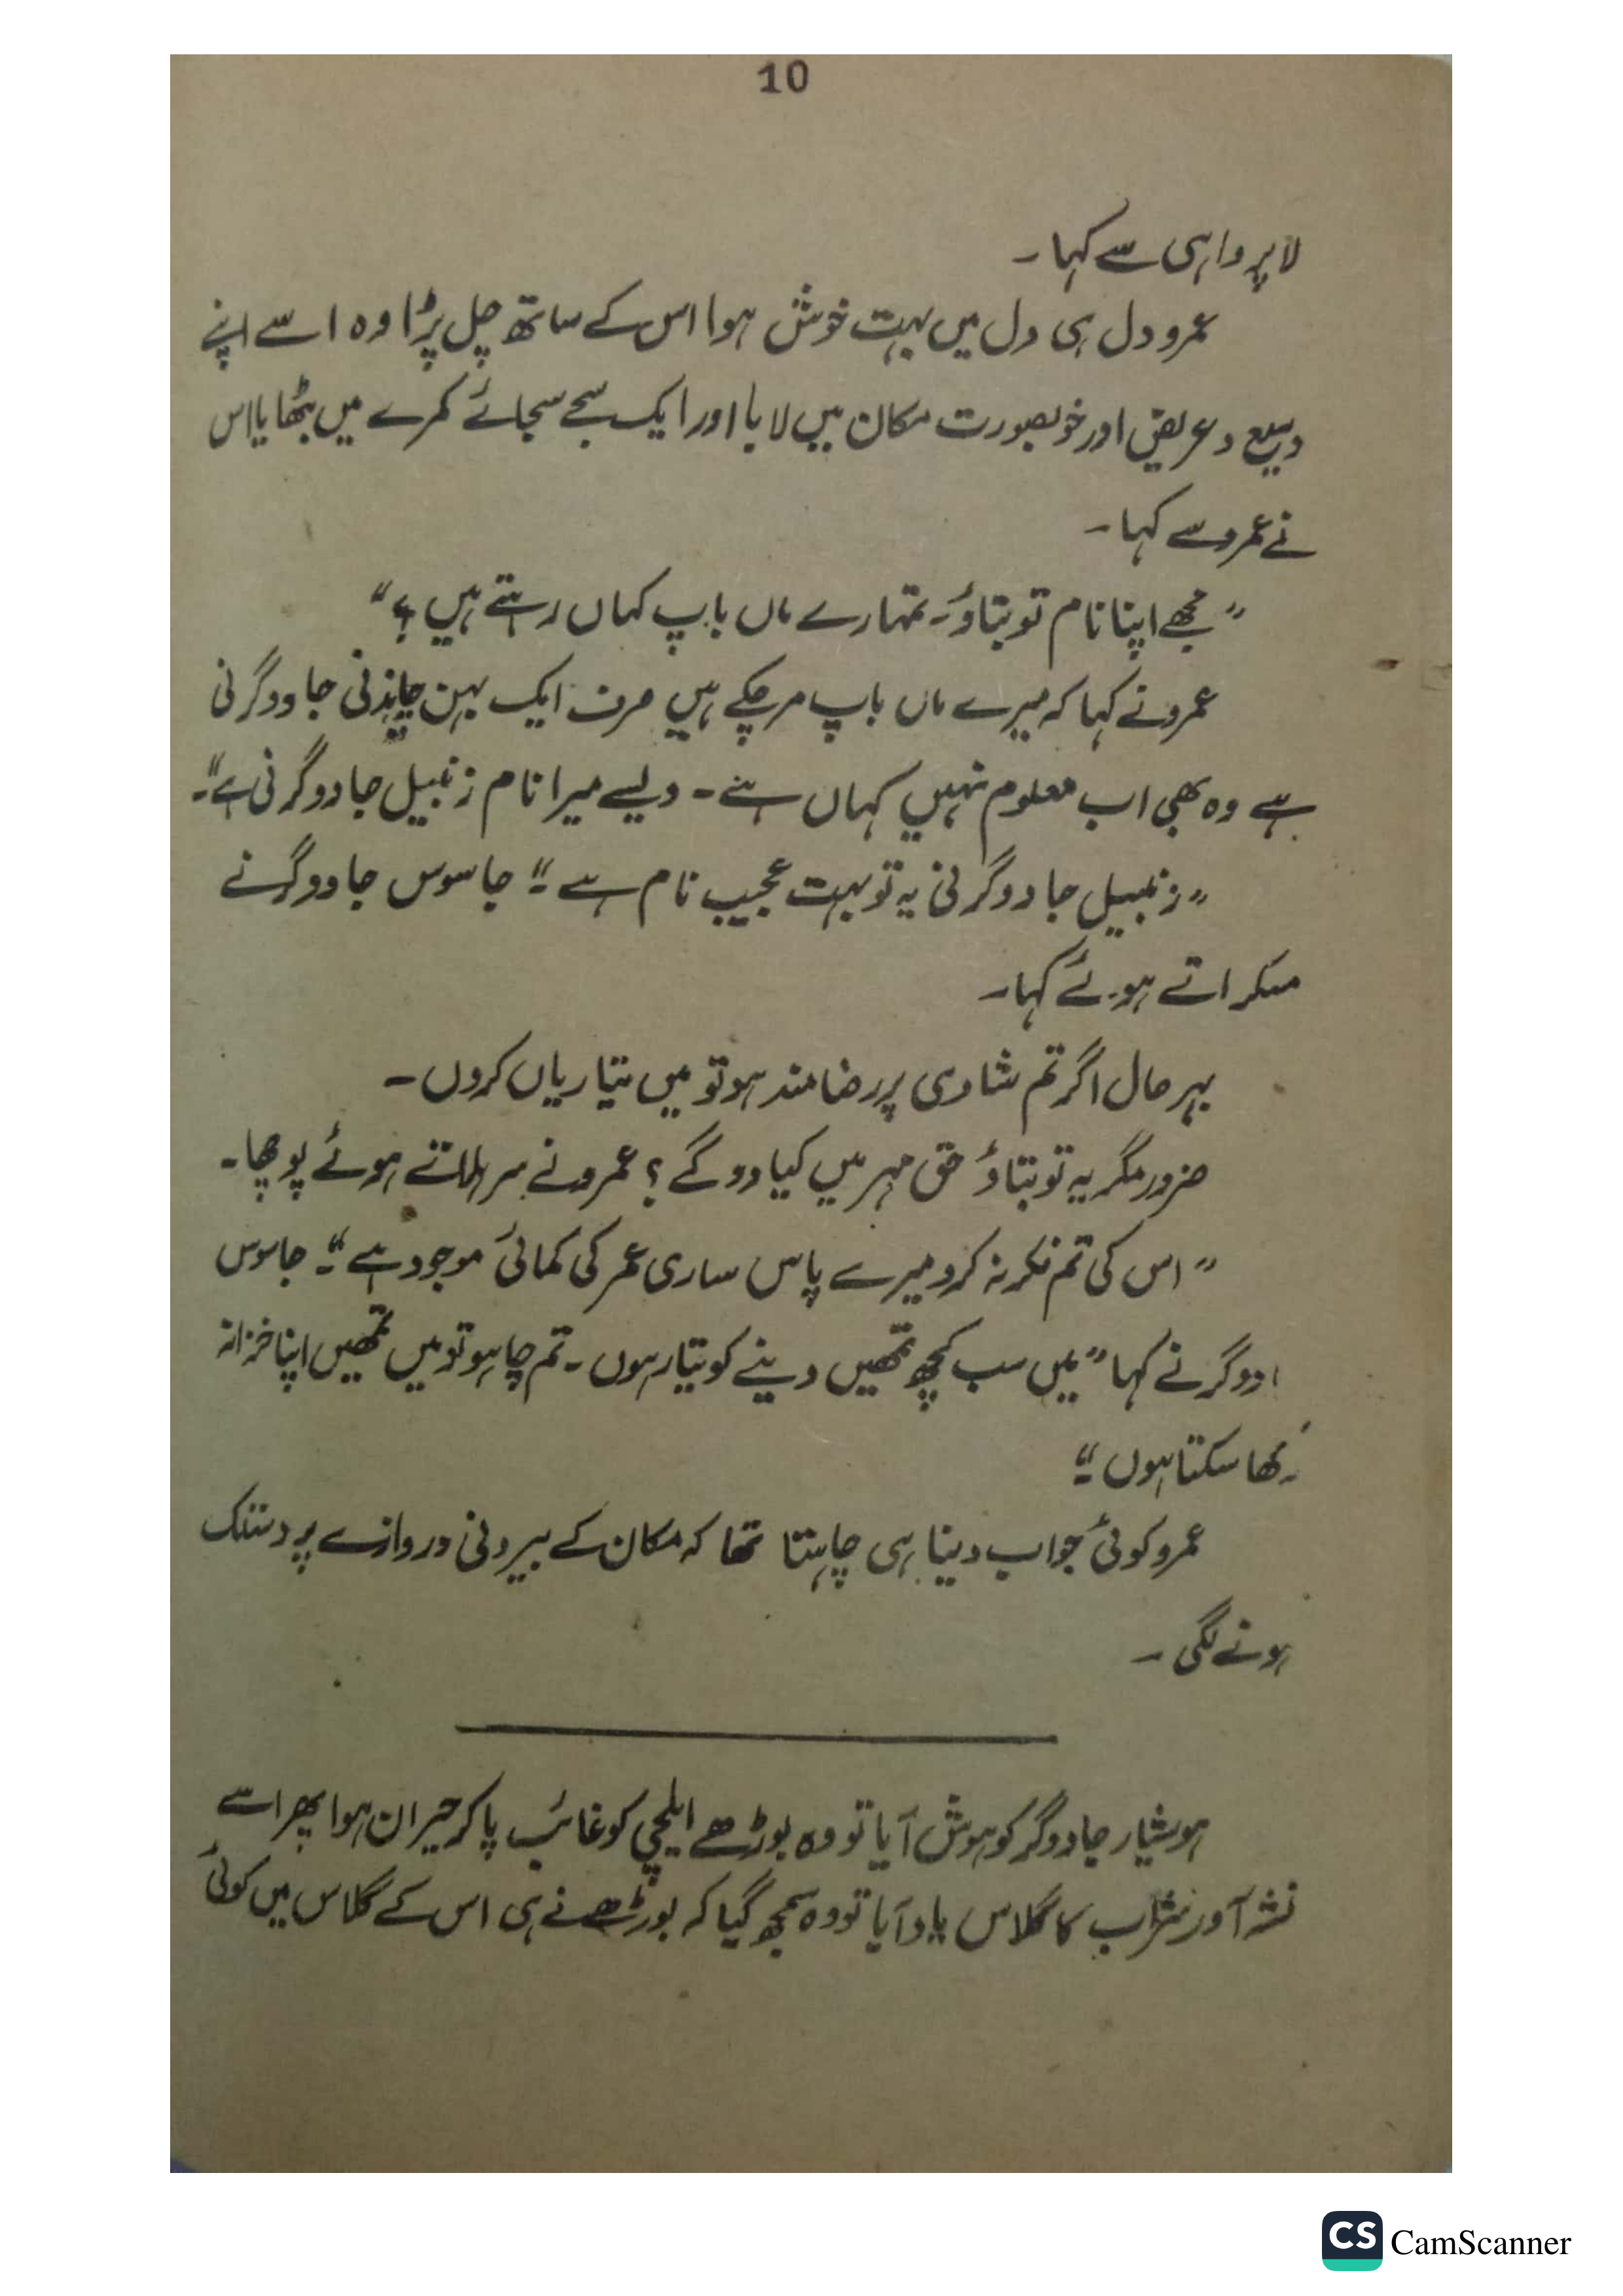 10
لاپرواہی سے کہا۔
عمرو دل ہی دل میں بہت خوش ہوا اس کے ساتھ چل پڑا وہ اسے اپنے
وسیع و عریض اور خوبصورت مکان میں لایا اور ایک سجے سجائے کمرے میں بٹھایا اس
نے عمرو سے کہا۔
"مجھے اپنا نام تو بتاؤ۔ تمہارے ماں باپ کہاں رہتے ہیں؟"
عمرو نے کہا کہ میرے ماں باپ مر چکے ہیں صرف ایک بہن چاندنی جادوگرنی
ہے وہ بھی اب معلوم نہیں کہاں ہے۔ ویسے میرا نام زنبیل جادوگرنی ہے"۔
"زنبیل جادوگرنی یہ تو بہت عجیب نام ہے"۔ جاسوس جادوگر نے
مسکراتے ہوئے کہا۔
بہرحال اگر تم شادی پر رضامند ہو تو میں تیاریاں کروں۔
ضرور مگر یہ تو بتاؤ حق مہر میں کیا دو گے؟ عمرو نے سر ہلاتے ہوئے پوچھا۔
"اس کی تم فکر نہ کرو میرے پاس ساری عمر کی کمائی موجود ہے"۔ جاسوس
ادوگر نے کہا "میں سب کچھ تمھیں دینے کو تیار ہوں۔ تم چاہو تو میں تمھیں اپنا خزانہ
کھا سکتا ہوں"۔
عمرو کوئی جواب دینا ہی چاہتا تھا کہ مکان کے بیرونی دروازے پر دستک
ہونے لگی۔
ہوشیار جادوگر کو ہوش آیا تو وہ بوڑھے ایلچی کو غائب پا کر حیران ہوا پھر اسے
نشہ آور شراب کا گلاس یاد آیا تو وہ سمجھ گیا کہ بوڑھے نے ہی اس کے گلاس میں کوئی
CS CamScanner